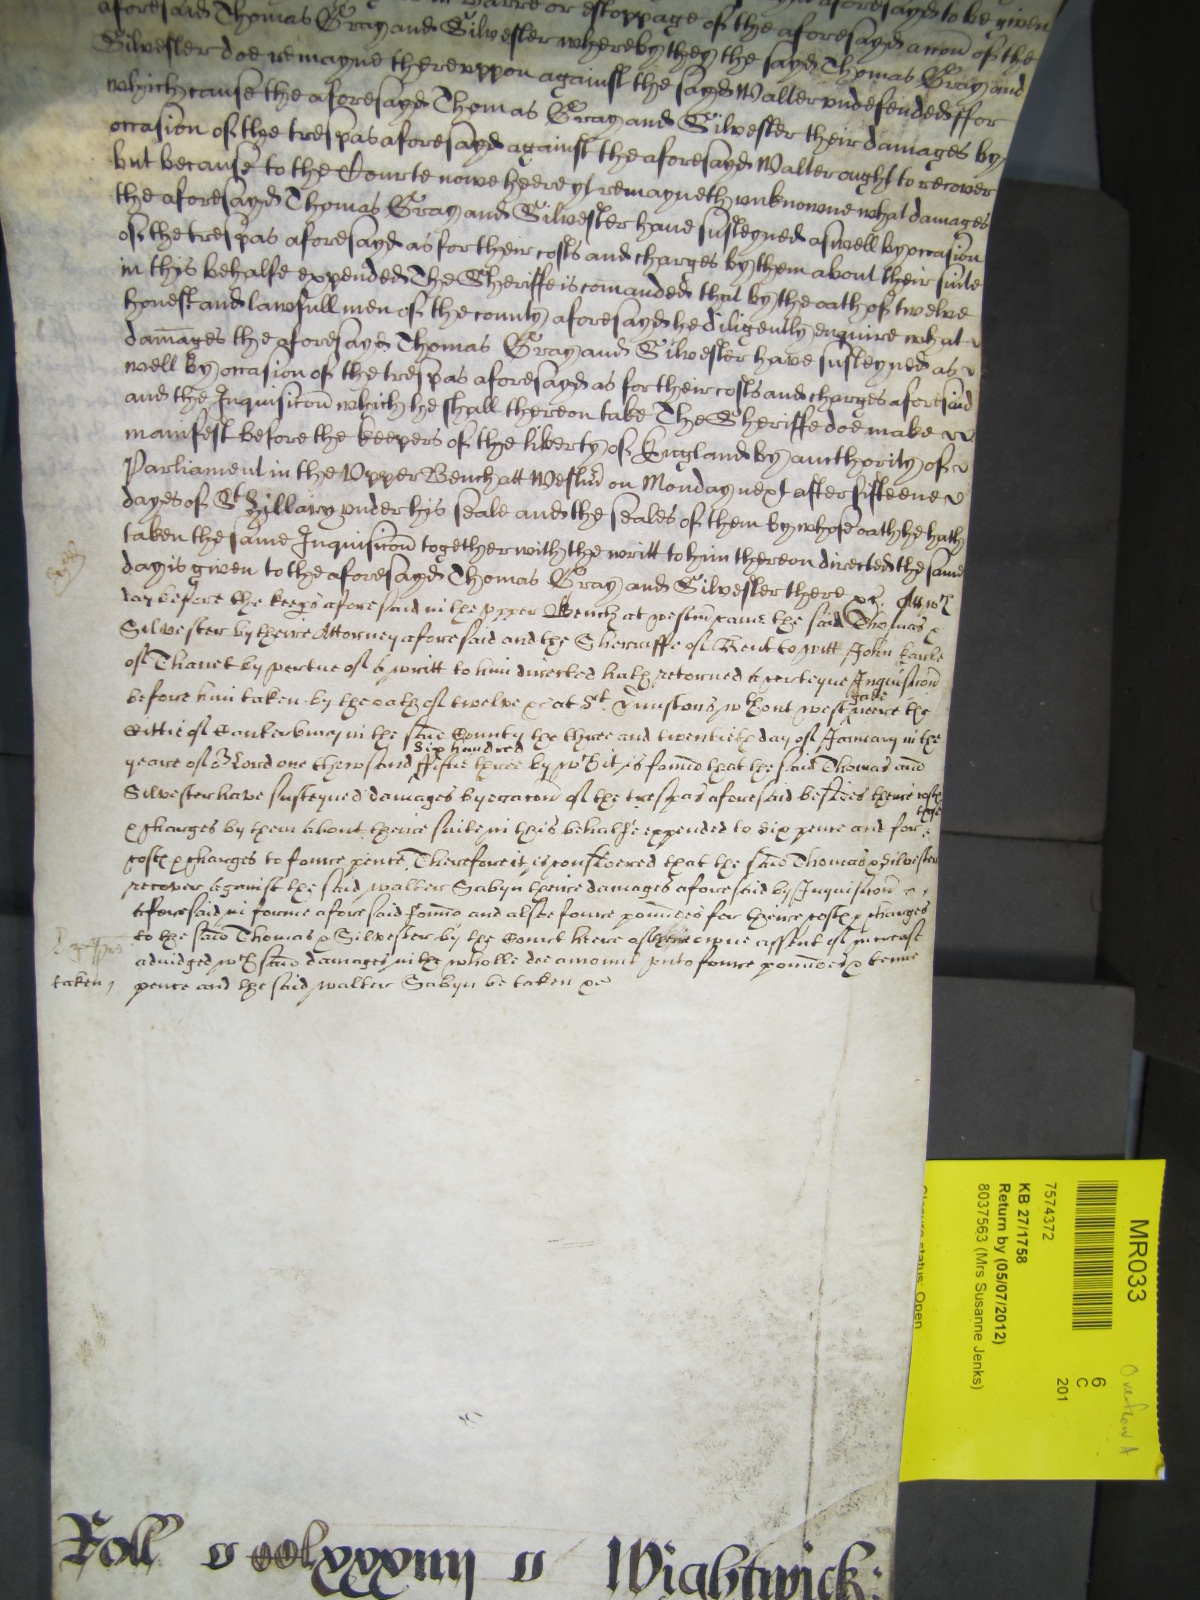 aforesaid Thomas Gray and Silvester in barre or estoppage of the aforesayd accon of the aforesayd to be given
Silvester doe remayne thereuppon against the sayd Walter undefended ffor
which cause the aforesayd Thomas Gray and Silvester their damages by
occasion of the trespas aforesayd against the aforesayd Walter ought to recover
but because to the Courte nowe heere yt remayneth unknowne what damages
the aforesayd Thomas Gray and Silvester have susteyned aswell by occasion
of the trespas aforesayd as for their costs and charges by them about their suite
in this behalfe expended The Sheriffe is comanded that by the oath of twelve
honest and lawfull men of the county aforesayd he diligently enquire what
damages the aforesayd Thomas Gray and Silvester have susteyned as
well by occasion of the trespas aforesayd as for their costs and charges aforesaid
and the Inquisicon which he shall thereon take The Sheriffe doe make
manifest before the keepers of the liberty of England by aucthority of
Parliament in the Upper Bench att Westm on Monday next after fifteene
dayes of St Hillary under his seale and the seales of them by whose oath he hath
taken the same Inquisicon together with the writt to him thereon directed the same
day is given to the aforesayd Thomas Gray and Silvester there &c. Att wch
day before the keeps aforesaid in the upper Bench at westm came the said Thomas &
Silvester by theire Attorney aforesaid and the Sherriffe of Kent to witt John
of Thanet by vertue of a writt to him directed hath retorned a certeyne Inquisicon
before him taken by the oathe of twelve &c at St. Dunstons wthout westgate neere the
Cittie of Canterbury in the said County the three and twentieth day of January in the
yeare of or Lord one thowsand six hundred fiftie three by wch it is found that the said Thomas and
Silvester have susteyned damages by occacon of the trespas aforesaid besides theire costs
& charges by them about theire suite in this behalfe expended to six pence and for those
costs & charges to foure pence Therefore it is considered that the said Thomas & Silvester
recover against the said walter Sabyn theire damages aforesaid by Inquisicon
aforesaid in forme aforesaid found and alsoe foure poundes for theire costs & charges
to the said Thomas & Silvester by the Court heere of theire owne assent of increase
adiudged wch said damages in the wholle doe amount unto foure poundes & tenne
taken, pence and the said walter Sabyn be taken &c
Roll CCClxxxiiij Wightwick:
MR033
Overflow A
6
C
201
7574372
KB 27/1758
Return by (05/07/2012)
8037563 (Mrs Susanne Jenks)
Closure status: Open